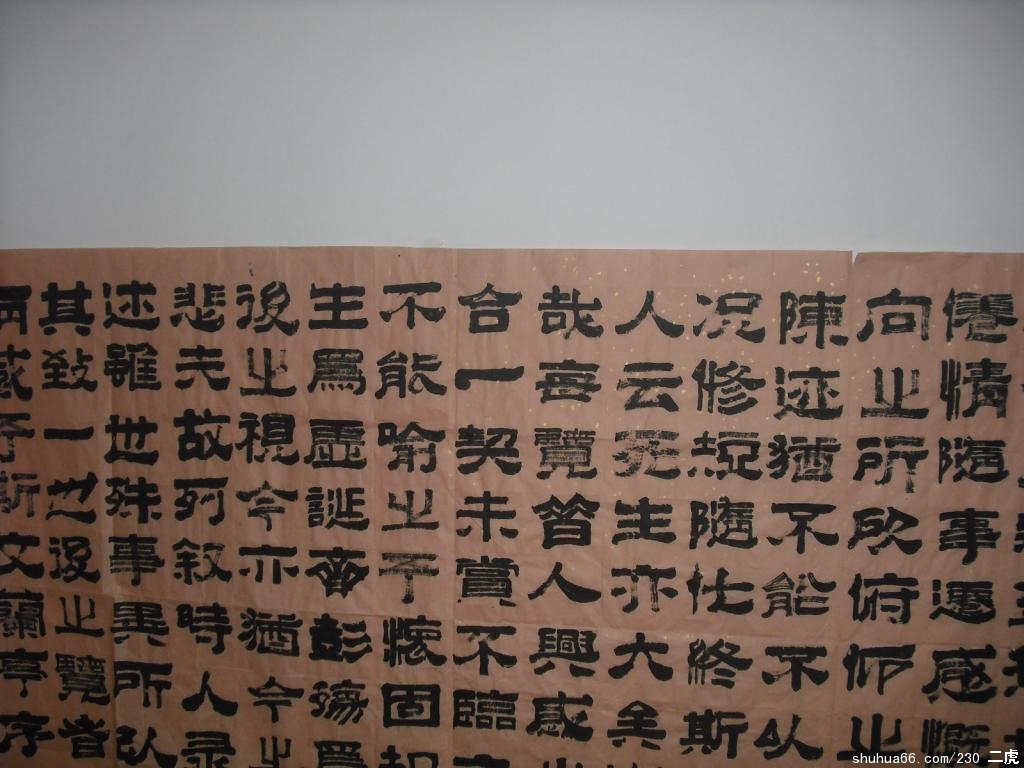 倦情隨事遷感慨
向之所欣俯仰之
陳迹猶不能不以
況修短隨化終期
人云死生亦大矣
哉喜覽昔人興感
合一契未嘗不臨
不能喻之于懷固知
生為虛誕齊彭殤為
後之視今亦猶今之
悲夫故列敘時人录
述雖世殊事異所以
其致一也後之覽者
有感于斯文蘭亭序
shuhua66.com/230 二虎